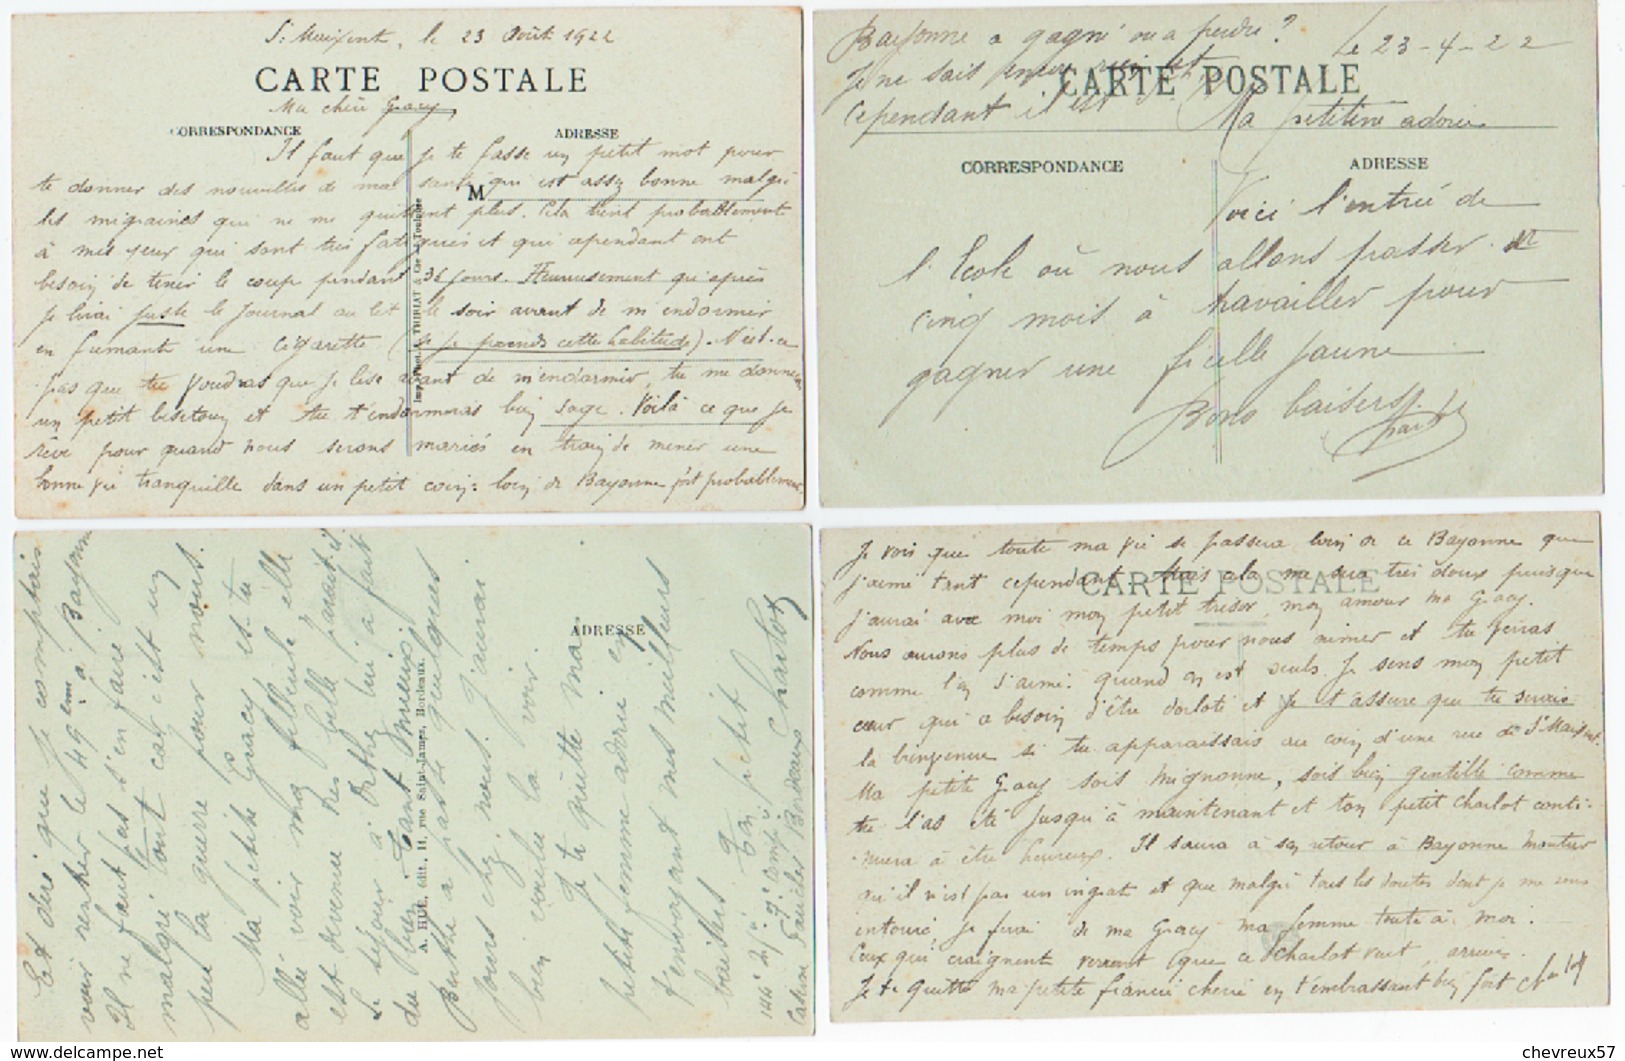 St Maixent, le 23 Août 1922
CARTE POSTALE
Ma chère Gracy
CORRESPONDANCE
ADRESSE
Il faut que je te fasse un petit mot pour
te donner des nouvelles de ma santé qui est assez bonne malgré
M
les migraines qui ne me quittent plus. Cela tient probablement
à mes yeux qui sont très fatigués et qui cependant ont
besoin de tenir le coup pendant 36 jours. Heureusement qu'après
je lirai juste le journal au lit le soir avant de m'endormir
en fumant une cigarette (je prends cette habitude). N'est-ce
pas que tu voudras que je lise avant de m'endormir, tu me donneras
un petit bisetouy et tu t'endormiras bien sage. Voilà ce que je
rêve pour quand nous serons mariés en train de mener une
bonne vie tranquille dans un petit coin: loin de Bayonne fort probablement.
Imp. Phot. A. THIRIAT & Cie - Toulouse
Bayonne a gagné ou a perdu?
Le 23-4-22
Je ne sais encore rien et
CARTE POSTALE
cependant il est
Ma petitine adorée
CORRESPONDANCE
ADRESSE
Voici l'entrée de
l'Ecole où nous allons passer
cinq mois à travailler pour
gagner une ficelle jaune
Bons baisers
Et dire que je comptais
voir rentrer le 49ème à Bayonne
Il ne faut pas s'en faire
malgré tout car c'est un
peu la guerre pour nous.
Ma petite Gracy es-tu
allée voir ma filleule elle
est devenue très belle paraît-il
Le séjour à Orthez lui a fait
du bien. Tant mieux
Berthe a passé quelques
jours chez nous. J'aurai
bien voulu la voir.
Je te quitte ma
petite femme adorée en
t'envoyant mes meilleurs
baisers
Ton petit
Charlot
Caserne Faucher Bordeaux
ADRESSE
A. HUE, édit., 11, rue Saint-James, Bordeaux.
Je vois que toute ma vie se passera loin de ce Bayonne que
CARTE POSTALE
j'aime tant cependant. Mais cela me sera très doux puisque
j'aurai avec moi mon petit trésor, mon amour ma Gracy.
Nous aurons plus de temps pour nous aimer et tu verras
comme l'on s'aime quand on est seuls. Je sens mon petit
cœur qui a besoin d'être dorloté et je t'assure que tu serais
la bienvenue si tu apparaissais au coin d'une rue de St Maixent.
Ma petite Gracy sois mignonne, sois bien gentille comme
tu l'as été jusqu'à maintenant et ton petit Charlot conti-
nuera à être heureux. Il saura à son retour à Bayonne montrer
qu'il n'est pas un ingrat et que malgré tous les doutes dont je me sens
entouré je ferai de ma Gracy ma femme toute à moi.
Ceux qui craignent verront que ce Charlot veut, arrive.
Je te quitte ma petite fiancée chérie en t'embrassant bien fort Charlot
delcampe.net
chevreux57